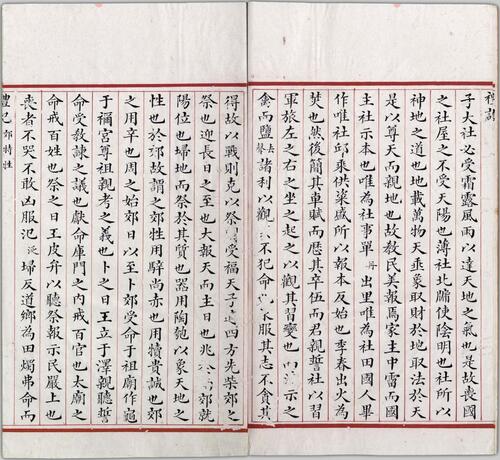 禮記
子大社必受霜露風雨以達天地之氣也是故喪國
之社屋之不受天陽也薄社北牖使陰明也社所以
神地之道也地載萬物天垂象取財於地取法於天
是以尊天而親地也故教民美報焉家主中霤而國
主社示本也唯為社事單丹出里唯為社田國人畢
作唯社丘乘供粢盛所以報本反始也季春出火為
焚也然後簡其車賦而歷其卒伍而君親誓社以習
軍旅左之右之坐之起之以觀其習變也而示之
禽而鹽諸利以觀不犯命也服其志不貪其
得故以戰則克以祭受福天子四方先柴郊之
祭也迎長日之至也大報天而主日也兆郊就
陽位也埽地而祭於其質也器用陶匏以象天地之
性也於郊故謂之郊牲用騂尚赤也用犢貴誠也郊
之用辛也周之始郊日以至卜郊受命于祖廟作龜
于禰宮尊祖親考之義也卜之日王立于澤親聽誓
命受教諫之議也獻命庫門之內戒百官也太廟之
命戒百姓也祭之日王皮弁以聽祭報示民嚴上也
喪者不哭不敢凶服氾泛埽反道鄉為田燭弗命而
禮記 郊特牲